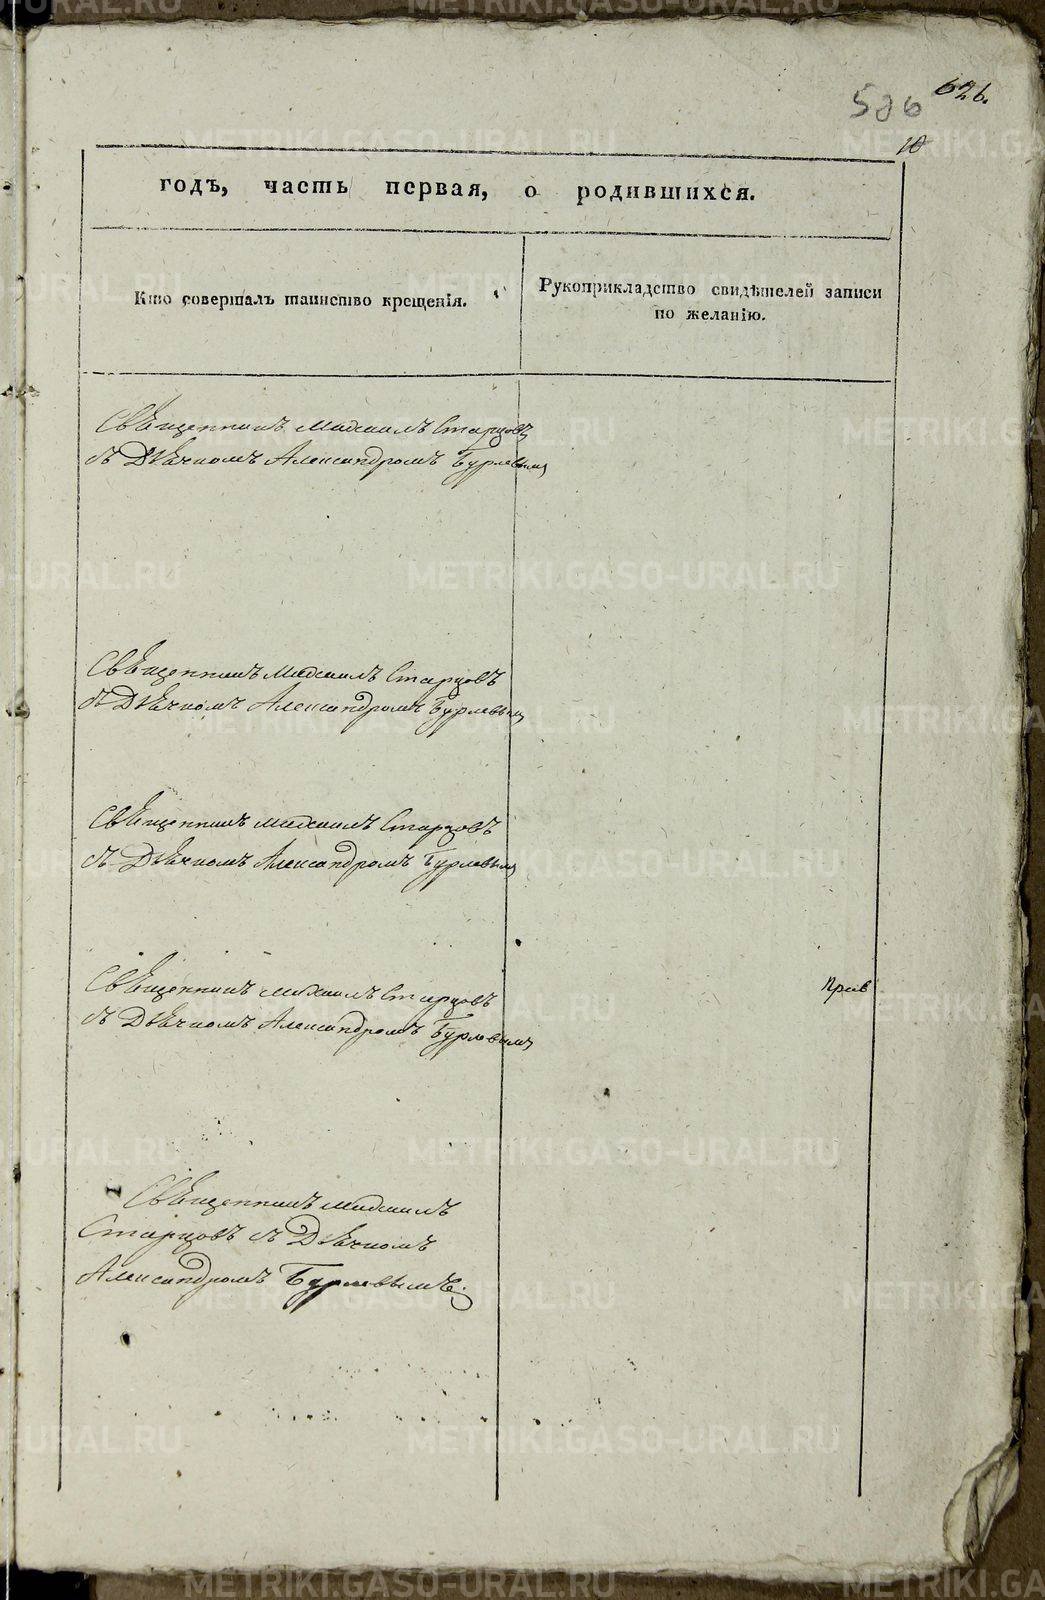 626.
586
10
годъ, часть первая, о родившихся.
Кто совершалъ таинство крещенія.
Рукоприкладство свидѣтелей записи
по желанію.
Священникъ Михаилъ Старцовъ
съ Дьячкомъ Александромъ Бурлевымъ
Священникъ Михаилъ Старцовъ
съ Дьячкомъ Александромъ Бурлевымъ
Священникъ Михаилъ Старцовъ
съ Дьячкомъ Александромъ Бурлевымъ
Священникъ Михаилъ Старцовъ
съ Дьячкомъ Александромъ Бурлевымъ
Прив
Священникъ Михаилъ
Старцовъ съ Дьячкомъ
Александромъ Бурлевымъ.
METRIKI.GASO-URAL.RU